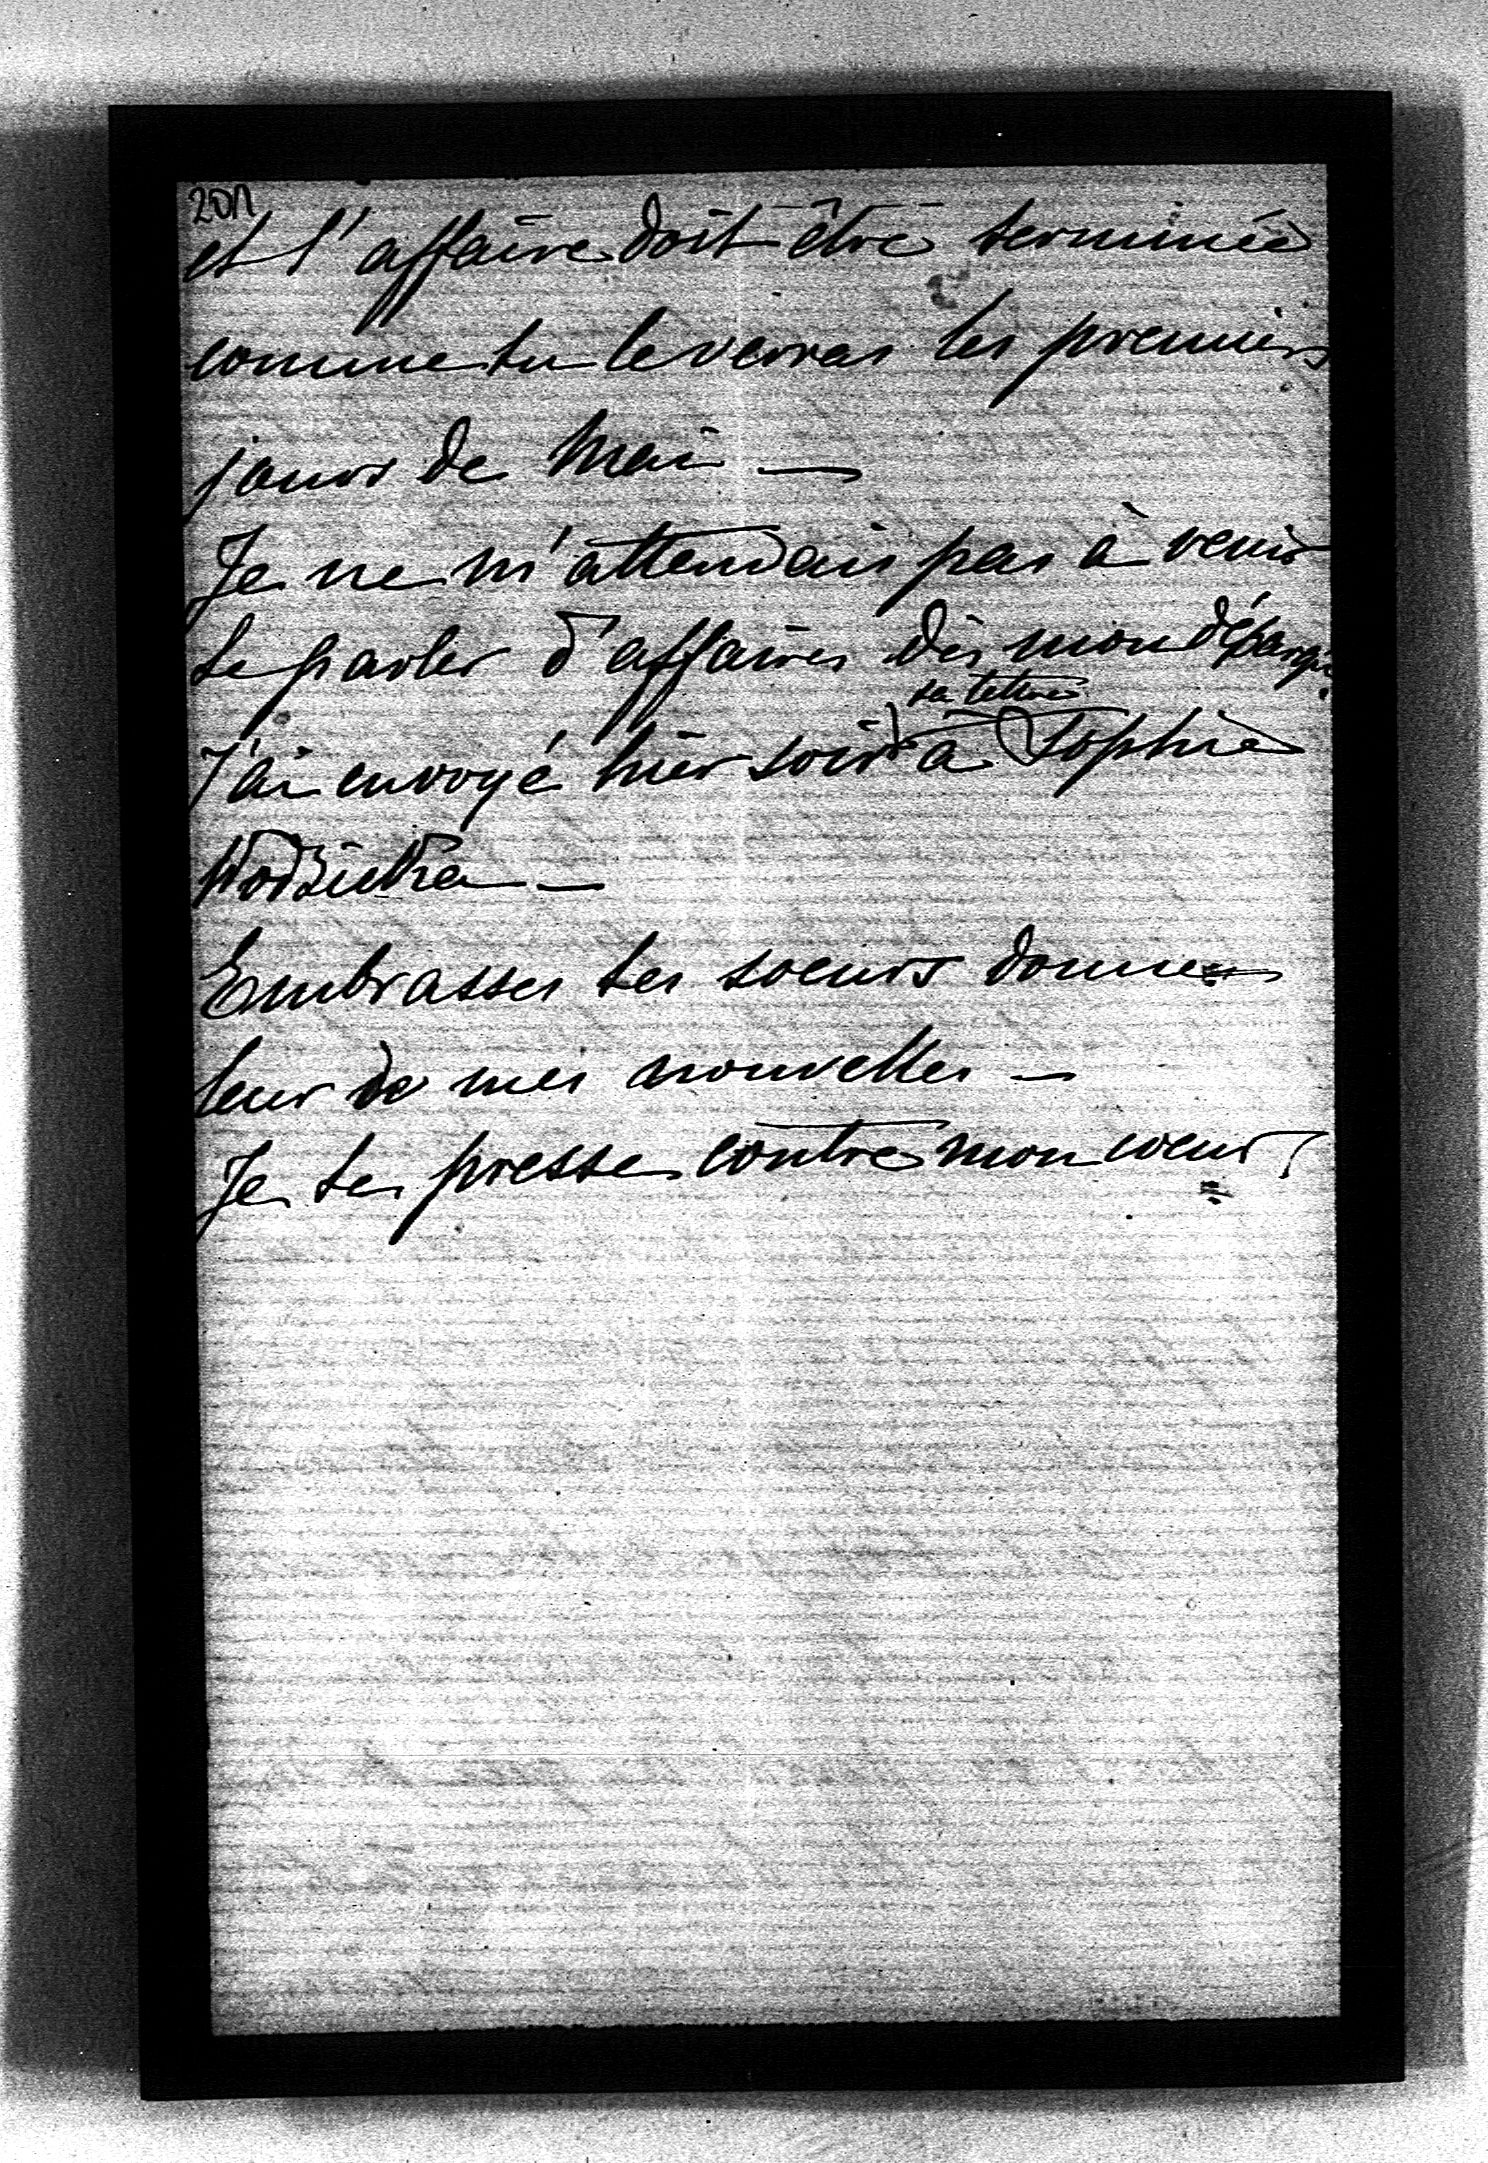 et l'affaire doit être terminée
comme tu le verras les premiers
jours de Mai —
Je ne m'attendais pas à venir
te parler d'affaires dès mon
sa lettre
J'ai envoyé hier soir à Sophie
Wodzicka —
Embrasses tes soeurs donnes=
leur de mes nouvelles —
Je te presse contre mon coeur